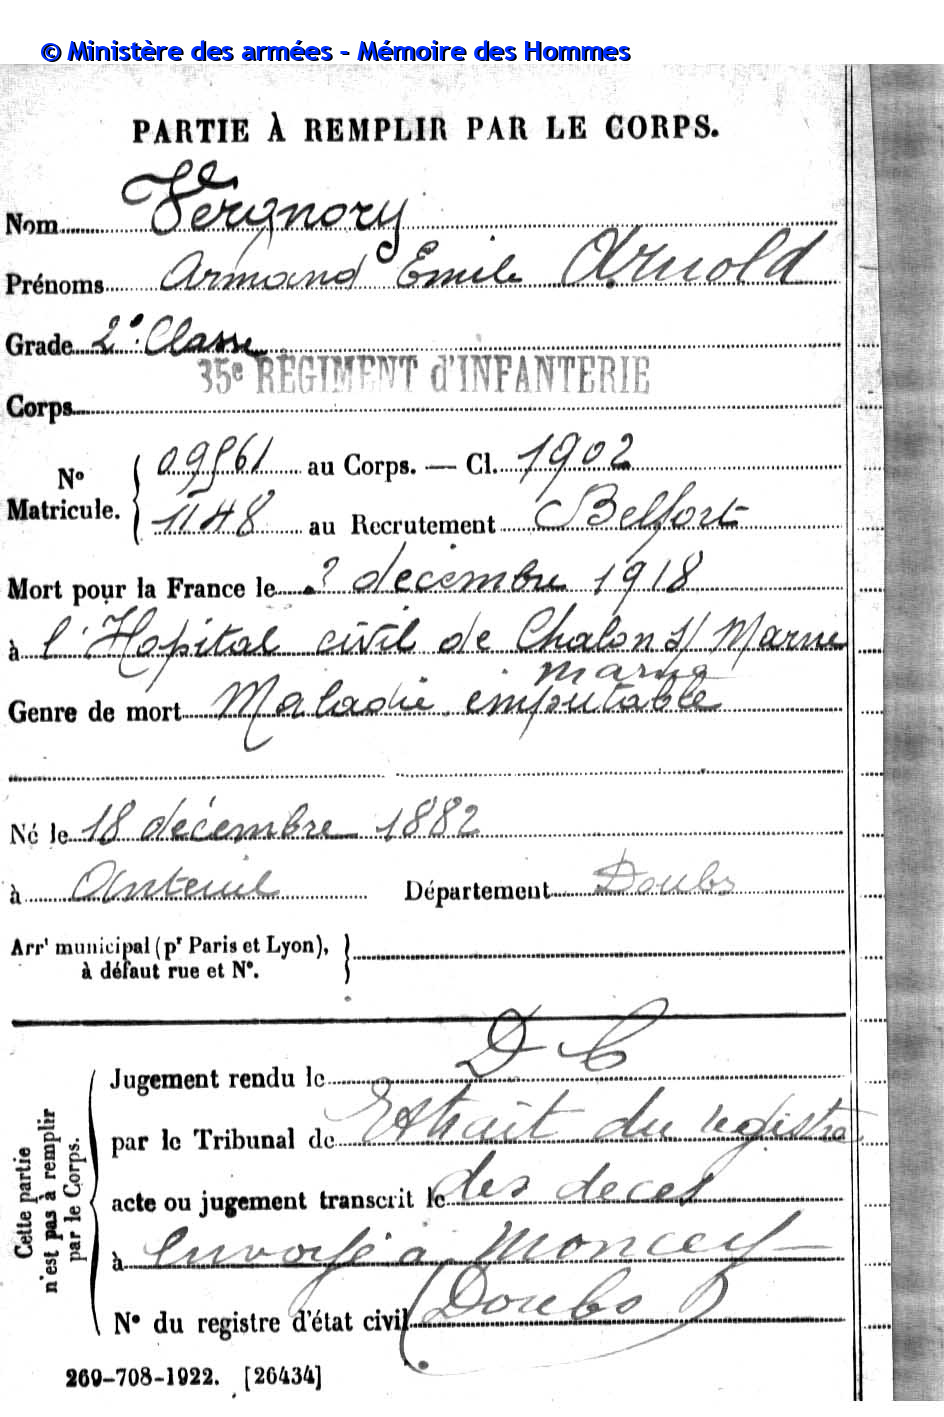 © Ministère des armées - Mémoire des Hommes
PARTIE À REMPLIR PAR LE CORPS.
Nom Vergnory
Prénoms Armand Emile Arnold
Grade 2e Classe
35e RÉGIMENT d'INFANTERIE
Corps
No Matricule. { 09561 au Corps. — Cl. 1902
1148 au Recrutement Belfort
Mort pour la France le 2 décembre 1918
à l'Hopital civil de Chalon s/ Marne
Marne
Genre de mort Maladie imputable
Né le 18 décembre 1882
à Anteuil Département Doubs
Arrt municipal (pr Paris et Lyon),
à défaut rue et No. }
Cette partie
n'est pas à remplir
par le Corps.
D C
Jugement rendu le
par le Tribunal de Extrait du registre
acte ou jugement transcrit le des deces
à envoyé à Moncey
No du registre d'état civil (Doubs)
269-708-1922. [26434]